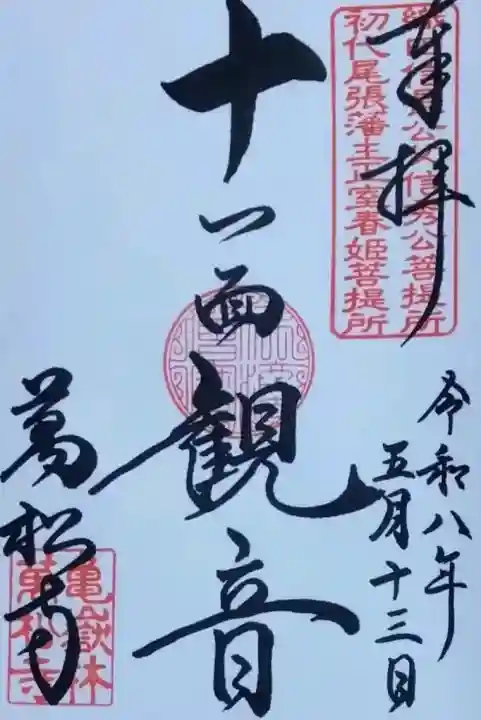 奉拝
織田信長公父信秀公菩提所
初代尾張藩主正室春姫菩提所
十一面観音
令和八年
五月十三日
萬松寺
亀嶽林
萬松寺